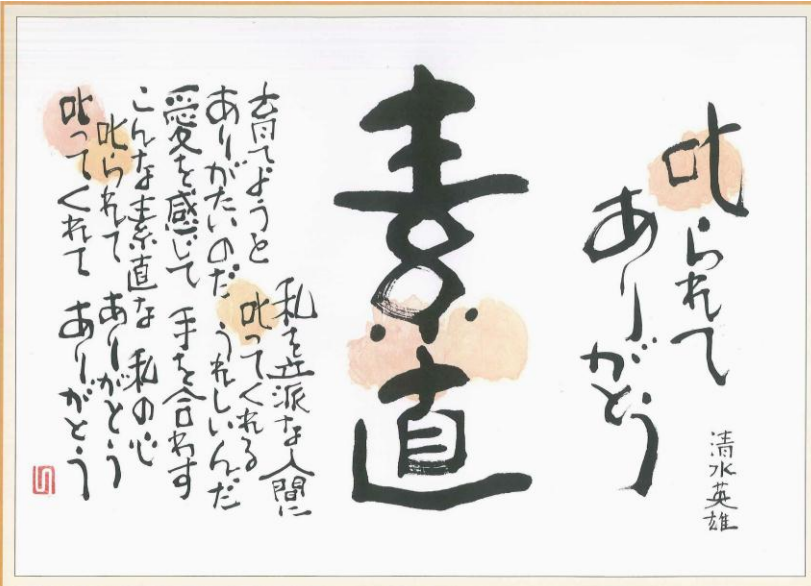 叱られて
ありがとう
清水英雄
素直
私を立派な人間に
育てようと 叱ってくれる
ありがたいのだ うれしいんだ
愛を感じて 手を合わす
こんな素直な 私の心
叱られて ありがとう
叱ってくれて ありがとう